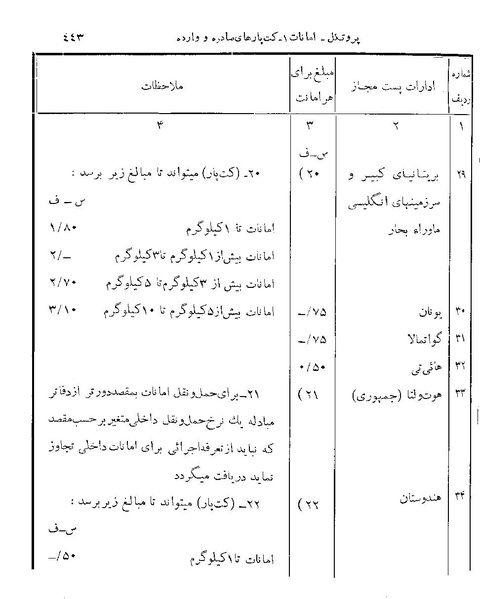 پروتکل ـ امانات ۱ـ کت‌پارهای صادره و وارده ۴۴۳
شماره ردیف | ادارات پست مجاز | مبلغ برای هر امانت | ملاحظات
۱ | ۲ | ۳ | ۴
س ـ ف
۲۹ | بریتانیای کبیر و | ۲۰) | ۲۰ـ (کت‌پار) میتواند تا مبالغ زیر برسد :
سرزمینهای انگلیسی | س ـ ف
ماوراء بحار | امانات تا ۱ کیلوگرم ۱/۸۰
امانات بیش از ۱ کیلوگرم تا ۳ کیلوگرم ۲/ـ
امانات بیش از ۳ کیلوگرم تا ۵ کیلوگرم ۲/۷۰
۳۰ | یونان | ـ/۷۵ | امانات بیش از ۵ کیلوگرم تا ۱۰ کیلوگرم ۳/۱۰
۳۱ | گواتمالا | ـ/۷۵
۳۲ | هائی‌تی | ۰/۵۰
۳۳ | هوت ولتا (جمهوری) | ۲۱) | ۲۱ـ برای حمل و نقل امانات بمقصد دورتر از دفاتر
مبادله یك نرخ حمل و نقل داخلی متغیر برحسب مقصد
که نباید از تعرفه اجرائی برای امانات داخلی تجاوز
نماید دریافت میگردد
۳۴ | هندوستان | ۲۲) | ۲۲ـ (کت‌پار) میتواند تا مبالغ زیر برسد :
س ـ ف
امانات تا ۱ کیلوگرم ـ/۵۰